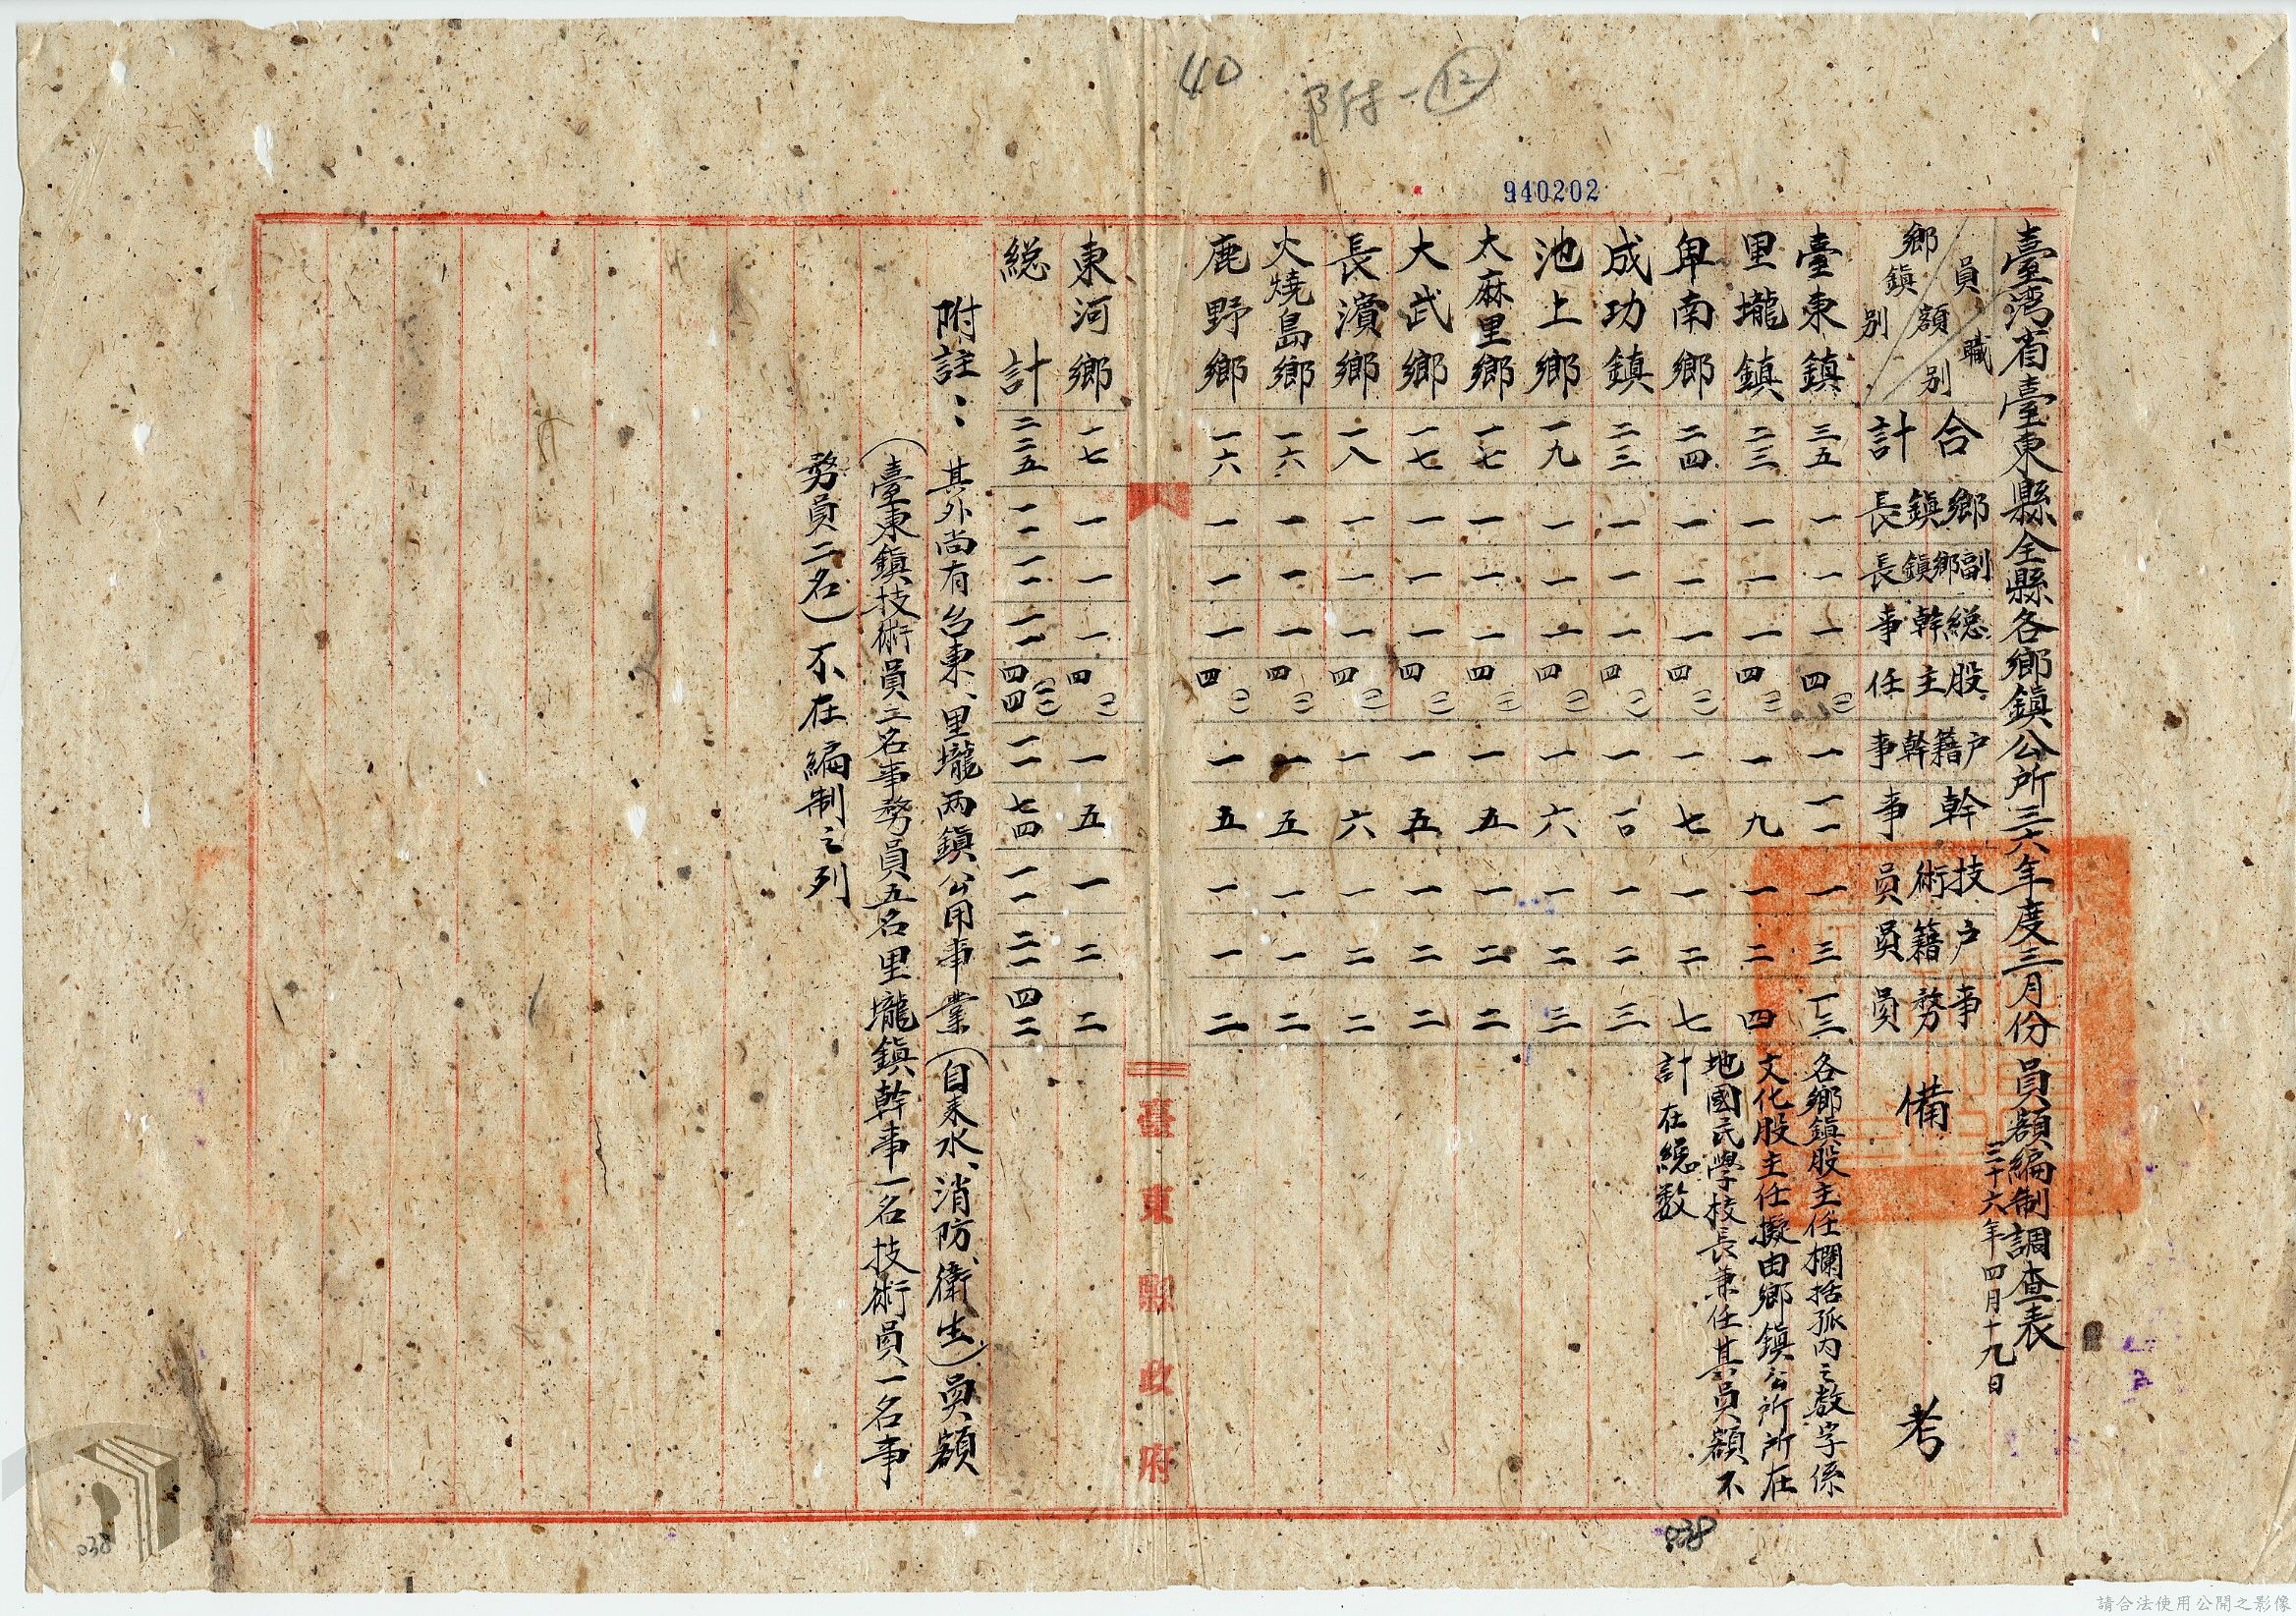 40
附一⑫
940202
臺湾省臺東縣全縣各鄉鎮公所三六年度三月份員額編制調查表
三十六年四月十九日
員額 職別 鄉鎮別 合計 鄉鎮長 副鄉鎮長 総幹事 股主任 戶籍幹事 幹事 技術員 戶籍員 事務員 備考
臺東鎮 三五 一 一 一 四(一) 一 一一 一 三 一三
里壠鎮 二三 一 一 一 四(一) 一 九 一 二 四
卑南鄉 二四 一 一 一 四(一) 一 七 一 二 七
成功鎮 二三 一 一 一 四(一) 一 一〇 一 二 三
池上鄉 一九 一 一 一 四(一) 一 六 一 二 三
太麻里鄉 一七 一 一 一 四(一) 一 五 一 二 二
大武鄉 一七 一 一 一 四(一) 一 五 一 二 二
長濱鄉 一八 一 一 一 四(一) 一 六 一 二 二
火燒島鄉 一六 一 一 一 四(一) 一 五 一 一 二
鹿野鄉 一六 一 一 一 四(一) 一 五 一 一 二
東河鄉 一七 一 一 一 四(一) 一 五 一 二 二
総計 二二五 一一 一一 一一 四四(一一) 一一 七四 一一 二一 四二
各鄉鎮股主任欄括孤內之数字係
文化股主任擬由鄉鎮公所所在
地國民學校長兼任其員額不
計在総数
臺東縣政府
附註：其外尚有台東、里壠兩鎮公用事業（自来水、消防、衛生）員額
（臺東鎮技術員三名事務員五名里壠鎮幹事一名技術員一名事
務員二名）不在編制之列
038
038
請合法使用公開之影像